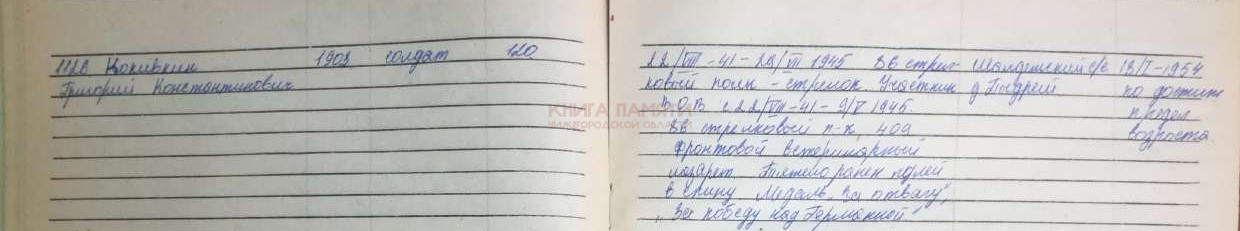 1126 Кокивкин 1903 солдат 120
Григорий Константинович
22/VIII-41 - 29/VII 1945 86 стрел- Шалдежский с/с 18/I-1954
ковый полк - стрелок Участник д. по достиж
В.О.В с 22/VIII-41 - 9/V 1945 предел
86 стрелковый п-к, 409 возраста
фронтовой ветеринарный
лазарет. Тяжело ранен пулей
в спину Медаль „За отвагу",
„За победу над Германией"
КНИГА ПАМЯТИ
НИЖЕГОРОДСКОЙ ОБЛАСТИ